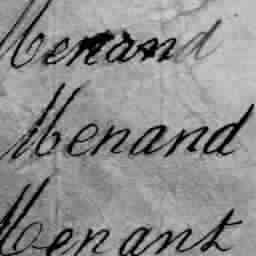 Menand
Menand
Menant